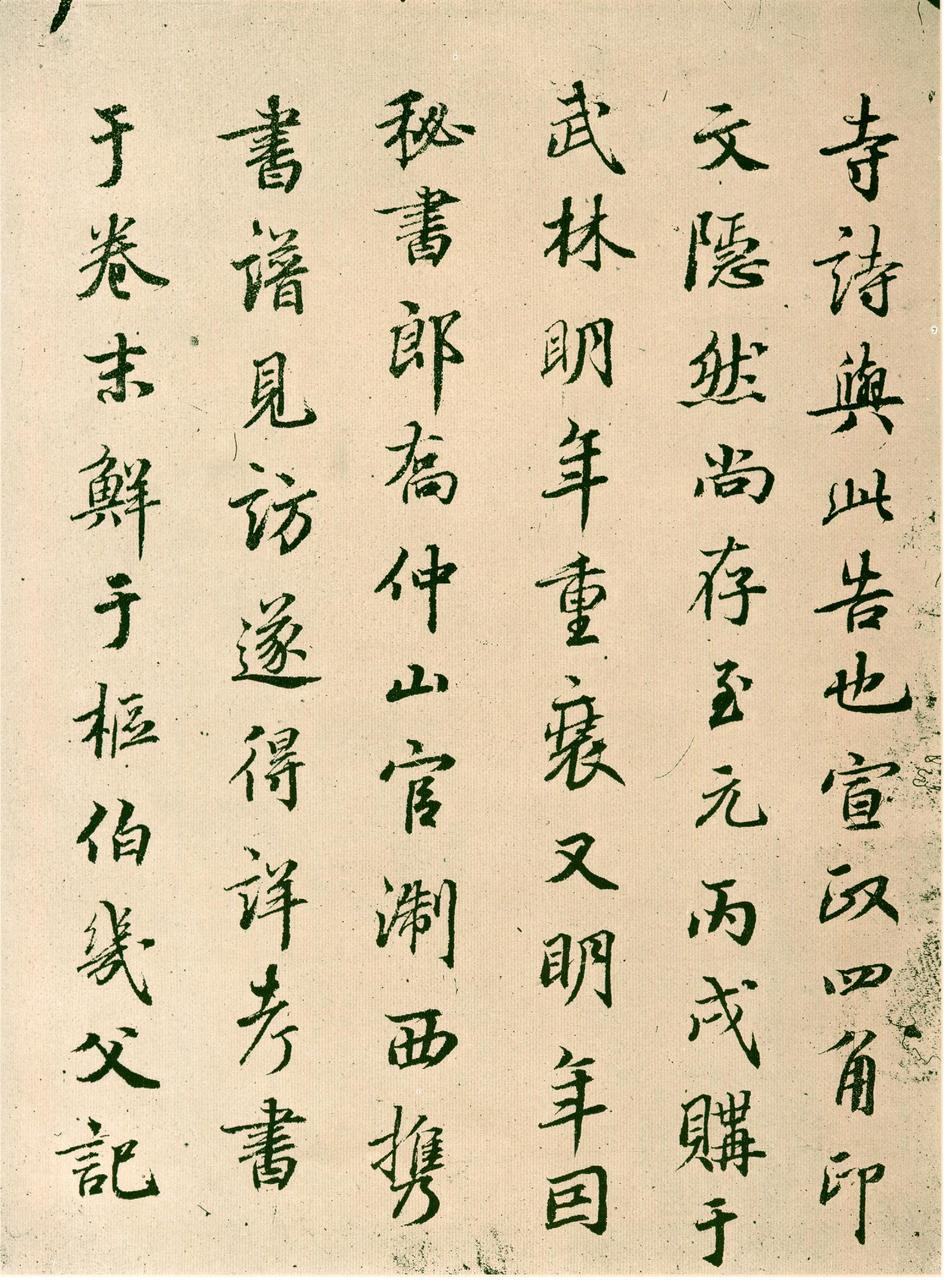 寺詩與此告也宣政四角印
文隱然尚存至元丙戌購于
武林明年重裝又明年因
秘書郎喬仲山官淛西携
書譜見訪遂得詳考書
于卷末鮮于樞伯幾父記